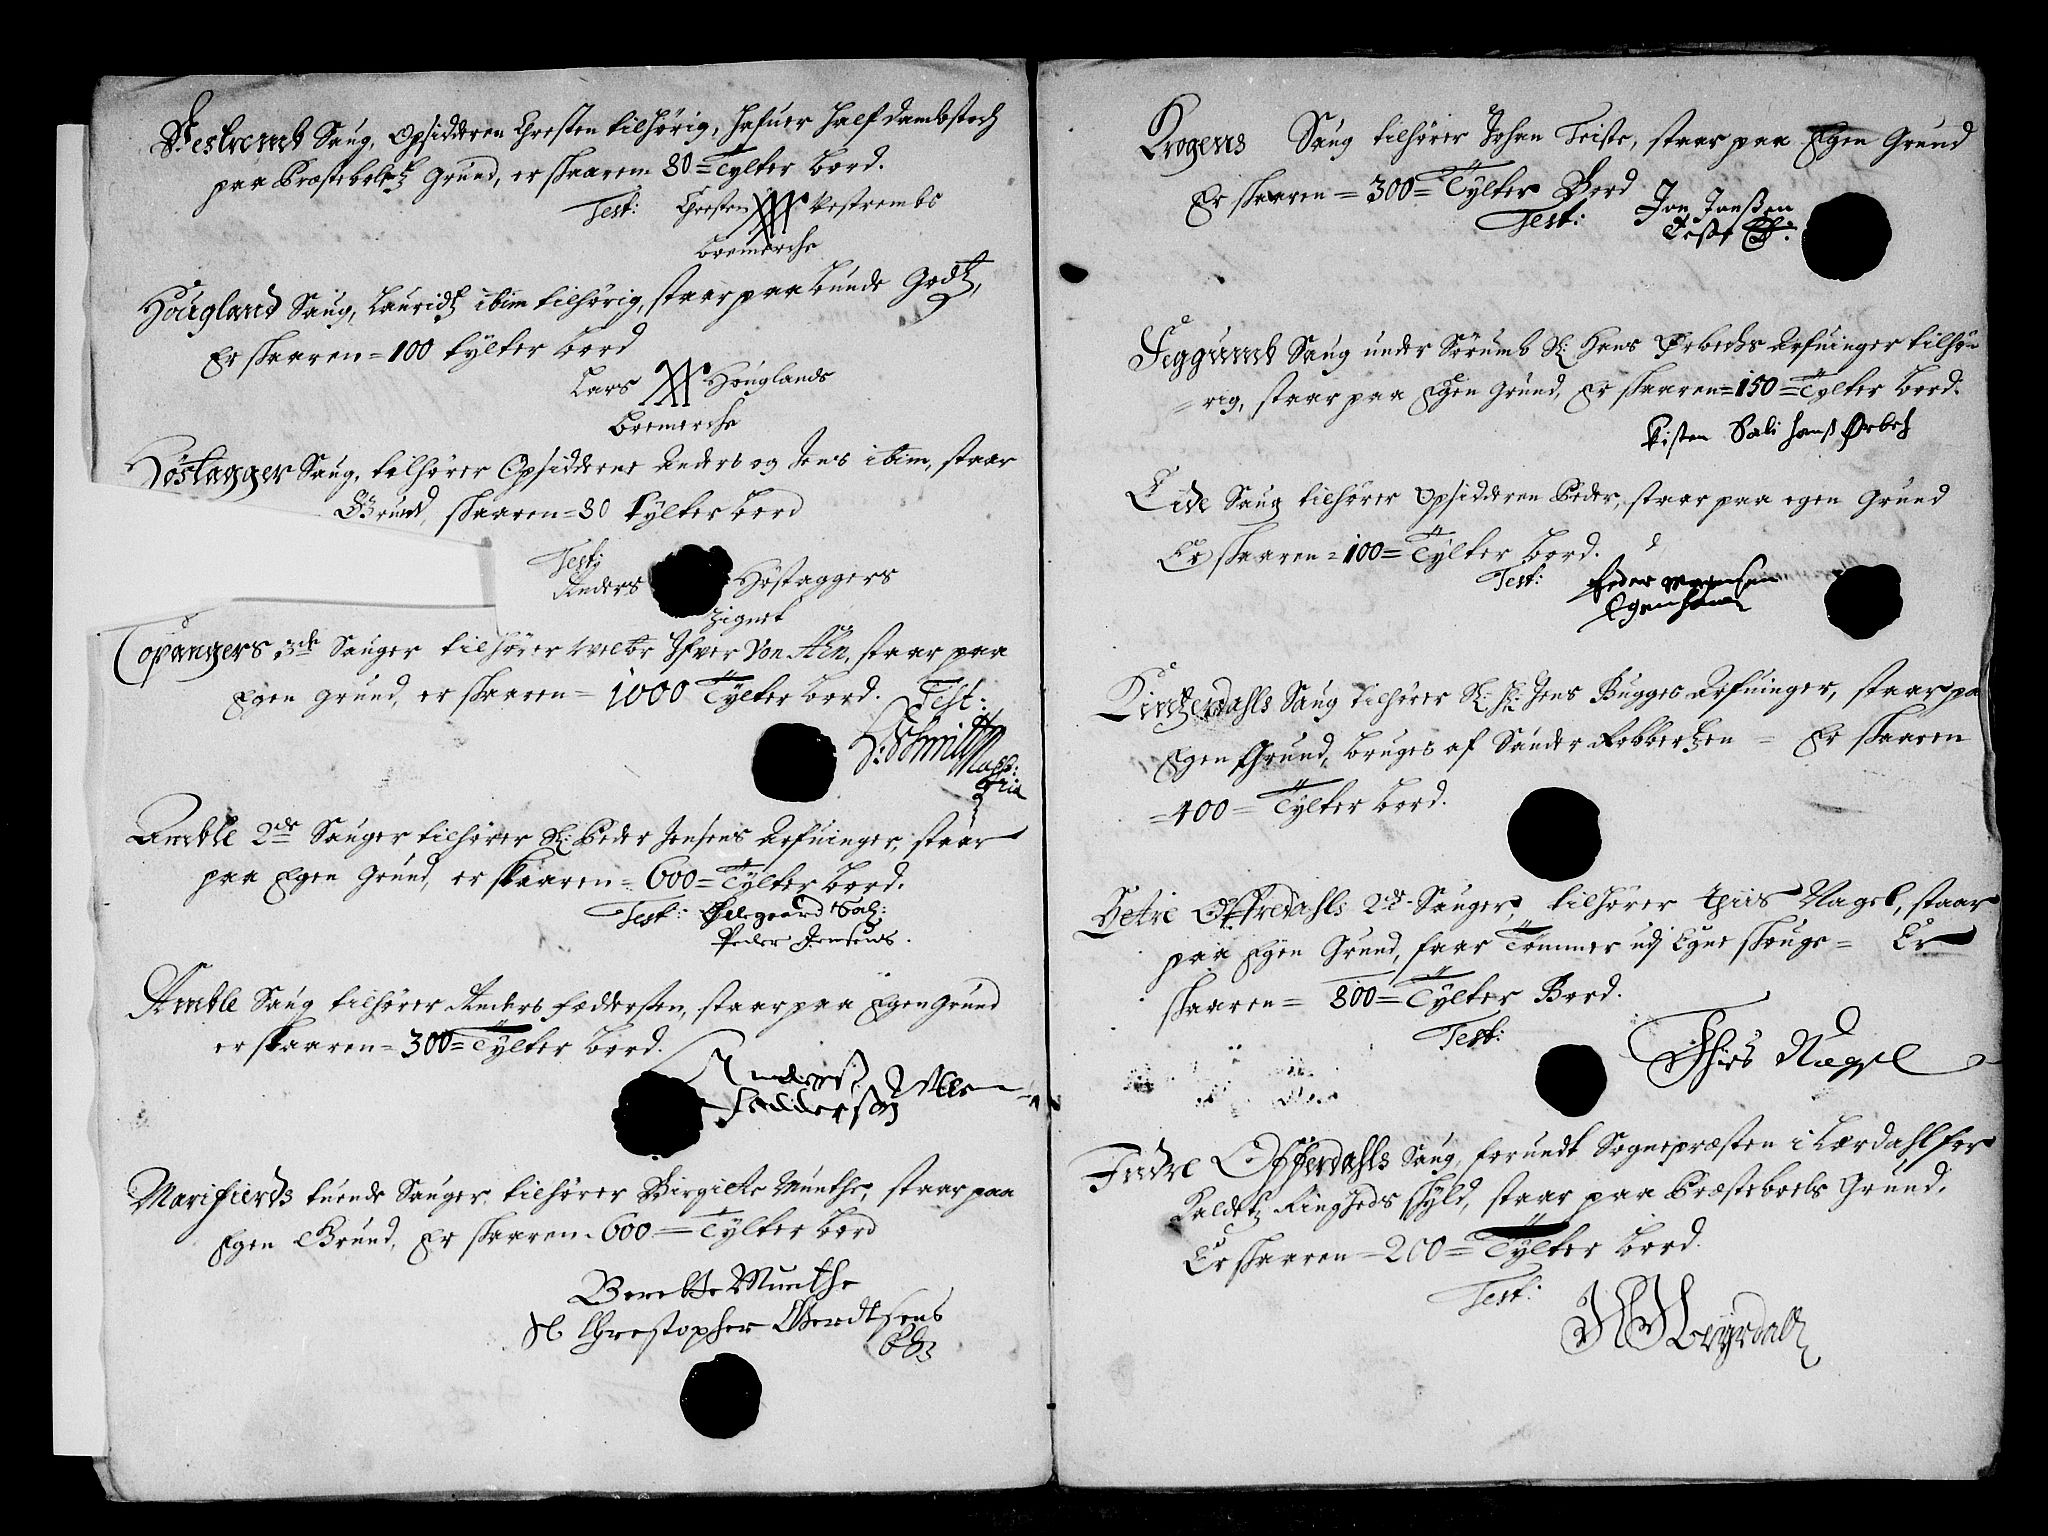 Vestremb Saug, Opsidderen Chresten tilhörig, hafuer half dambstoch
paa Præstebolets Grund, er skaaren 80 = Tylter bord.
Test: Chresten Vestrembs
Bomerche
Hougland Saug, Lauridtz ibim tilhörig, staar paa bunde Godtz,
Er skaaren = 100 tylter bord
Lars Houglands
Bomerche
Höstagger Saug, tilhörer Opsidderne Anders og Jens ibim, staar
Grund, skaaren = 80 tylter bord
Test:
Anders Höstaggers
Zignet
Copangers 3de Sauger tilhörer welbr Ifver Von Ahn, staar paa
Egen grund, er skaaren = 1000 Tylter bord. Test:
H: Schmitt
Amble 2de Sauger tilhörer Sl: Peder Jensens Arfuinger, staar
paa Egen Grund, er skaaren = 600 = Tylter bord.
Test: Øllegaard Sal:
Peder Jensens.
Amble Saug tilhörer Anders Feddersen, staar paa Egen Grund
er skaaren = 300 = Tylter bord.
Anders
Feddersen
Marifierds tuende Sauger tilhörer Birgitte Munthe, staar paa
Egen Grund, Er skaaren = 600 = Tylter bord
Berette Munthe
Christopher Gerdtsens
Krogens Saug tilhörer Johan Teiste, staar paa Egen Grund
Er skaaren = 300 = Tylter Bord
Test: Jon Jonßen
Teste
Feggumb Saug under Sörumb Sl: Hans Ørbechs Arfuinger tilhö=
=rig, staar paa Egen Grund, Er skaaren = 150 = Tylter bord.
Kisten Sali Hanß Ørbech
Eide Saug tilhörer Opsidderen Peder, staar paa egen Grund
Er skaaren = 100 = Tylter bord.
Test: Peder
Egenhand
Kintzerdahls Saug tilhörer Sl: Hr: Jens Bugges Arfuinger, staar pa
Egen Grund, bruges af Sander Robbertzen = Er skaaren
= 400 = Tylter bord.
Ofredahls 2de Sauger, tilhörer Thiis Nagel, staar
paa Egen Grund, faar Tömmer udj Egne Skouge = Er
skaaren = 800 = Tylter Bord.
Test: Thies Nagel
Indre Offerdahls Saug, forundt Sognepræsten i Lærdahl for
Kaldetz Ringheds skyld, staar paa Præsteboels Grund.
Er skaaren = 200 = Tylter bord.
Test: